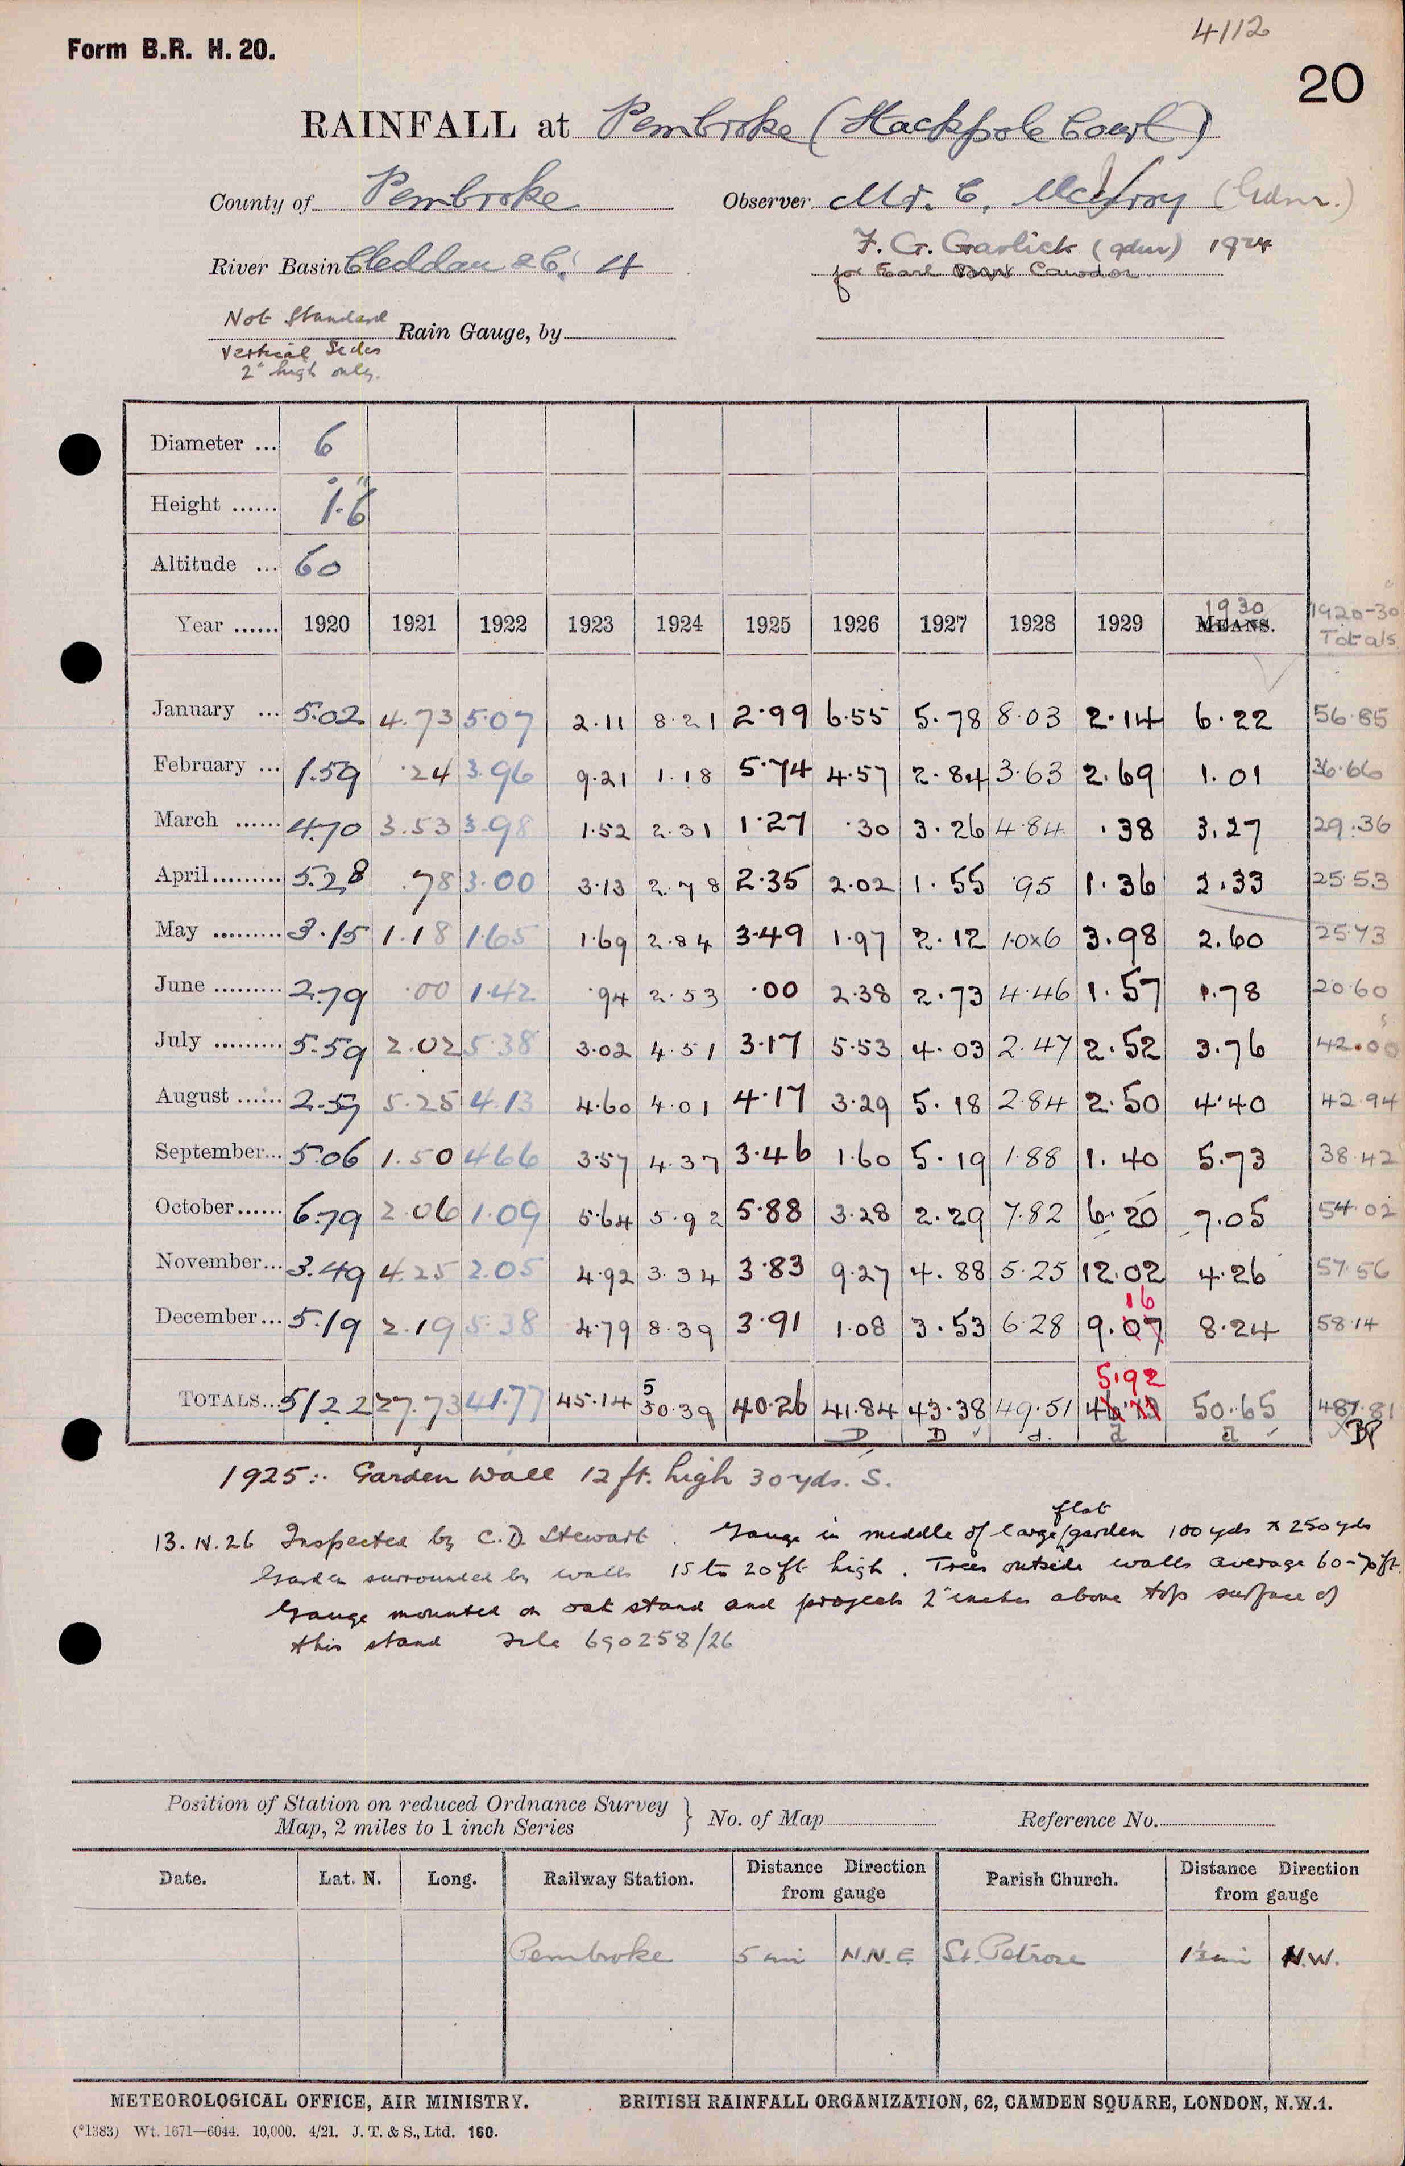 4112
Form B.R. H. 20.
20
RAINFALL at Pembroke (Stackpole Court)
County of Pembroke Observer Mr. C. McIlvroy (Gdnr.)
F. G. Garlick (gdnr) 1924
River Basin Cleddau &c. 4
for Earl Cawdor
Not Standard
Rain Gauge, by
Vertical Sides
2" high only.
Diameter ... 6
Height ...... 1.6
Altitude ... 60
Year ...... 1920 1921 1922 1923 1924 1925 1926 1927 1928 1929 MEANS. 1930 1920-30 Totals
January ... 5.02 4.73 5.07 2.11 8.21 2.99 6.55 5.78 8.03 2.14 6.22 56.85
February ... 1.59 .24 3.96 9.21 1.18 5.74 4.57 2.84 3.63 2.69 1.01 36.66
March ...... 4.70 3.53 3.98 1.52 2.31 1.27 .30 3.26 4.84 .38 3.27 29.36
April......... 5.28 .78 3.00 3.13 2.78 2.35 2.02 1.55 .95 1.36 2.33 25.53
May ......... 3.15 1.18 1.65 1.69 2.84 3.49 1.97 2.12 1.06 3.98 2.60 25.73
June ......... 2.79 .00 1.42 .94 2.53 .00 2.38 2.73 4.46 1.57 1.78 20.60
July ......... 5.59 2.02 5.38 3.02 4.51 3.17 5.53 4.03 2.47 2.52 3.76 42.00
August ...... 2.57 5.25 4.13 4.60 4.01 4.17 3.29 5.18 2.84 2.50 4.40 42.94
September... 5.06 1.50 4.66 3.57 4.37 3.46 1.60 5.19 1.88 1.40 5.73 38.42
October...... 6.79 2.06 1.09 5.64 5.92 5.88 3.28 2.29 7.82 6.20 7.05 54.02
November... 3.49 4.25 2.05 4.92 3.34 3.83 9.27 4.88 5.25 12.02 4.26 57.56
16
December... 5.19 2.19 5.38 4.79 8.39 3.91 1.08 3.53 6.28 9.07 8.24 58.14
5 5.92
TOTALS.. 51.22 27.73 41.77 45.14 50.39 40.26 41.84 43.38 49.51 46.73 50.65 487.81
D D d. d d BP
1925:. Garden Wall 12 ft. high 30 yds. S.
flat
13.IV.26 Inspected by C.D. Stewart. Gauge in middle of large/garden 100 yds x 250 yds
Garden surrounded by walls 15 to 20 ft high. Trees outside walls average 60-70 ft.
Gauge mounted on oak stand and projects 2 inches above top surface of
this stand File 690258/26
Position of Station on reduced Ordnance Survey
Map, 2 miles to 1 inch Series } No. of Map Reference No.
Date. Lat. N. Long. Railway Station. Distance Direction from gauge Parish Church. Distance Direction from gauge
Pembroke 5 mi N.N.E St. Petrox 1½ mi N.W.
METEOROLOGICAL OFFICE, AIR MINISTRY. BRITISH RAINFALL ORGANIZATION, 62, CAMDEN SQUARE, LONDON, N.W.1.
(*1383) Wt. 1671—6044. 10,000. 4/21. J. T. & S., Ltd. 160.